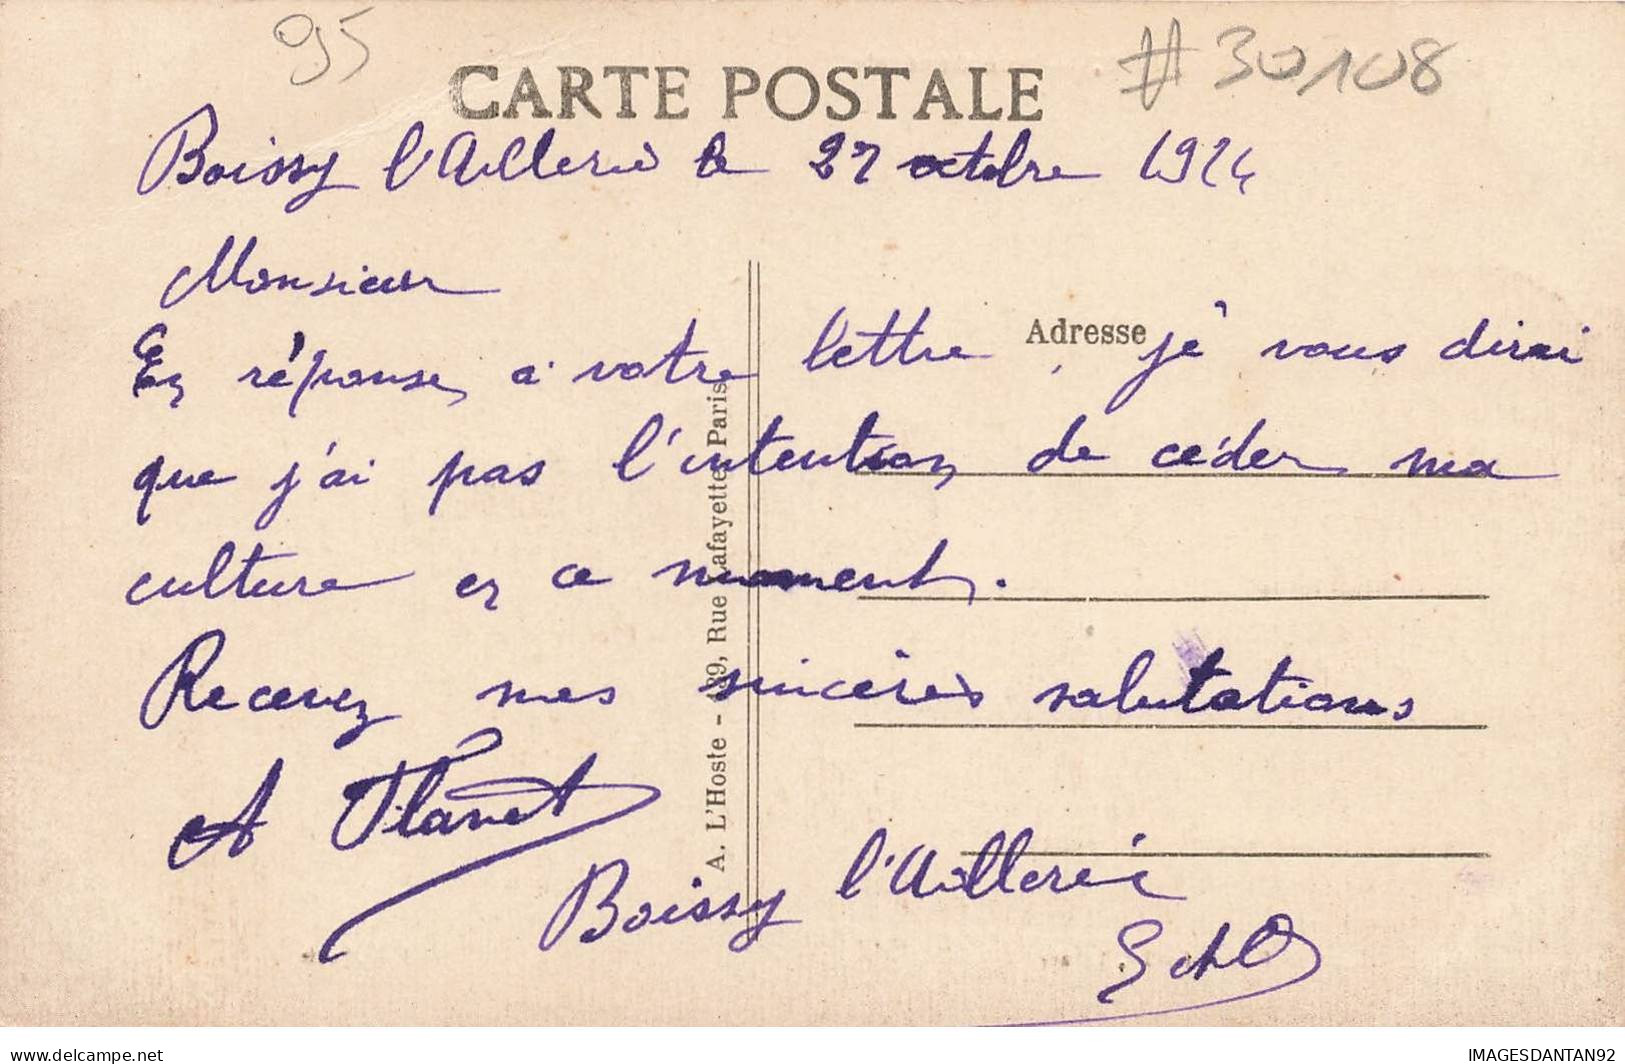 95
# 30108
CARTE POSTALE
Boissy l'Aillerie le 27 octobre 1924
Monsieur
Adresse
En réponse a votre lettre, je vous dirai
que j'ai pas l'intention de céder ma
culture en ce moment.
Recevez mes sincères salutations
A Planet
Boissy l'Aillerie
S et O
A. L'Hoste - 139, Rue Lafayette, Paris
IMAGESDANTAN92
delcampe.net